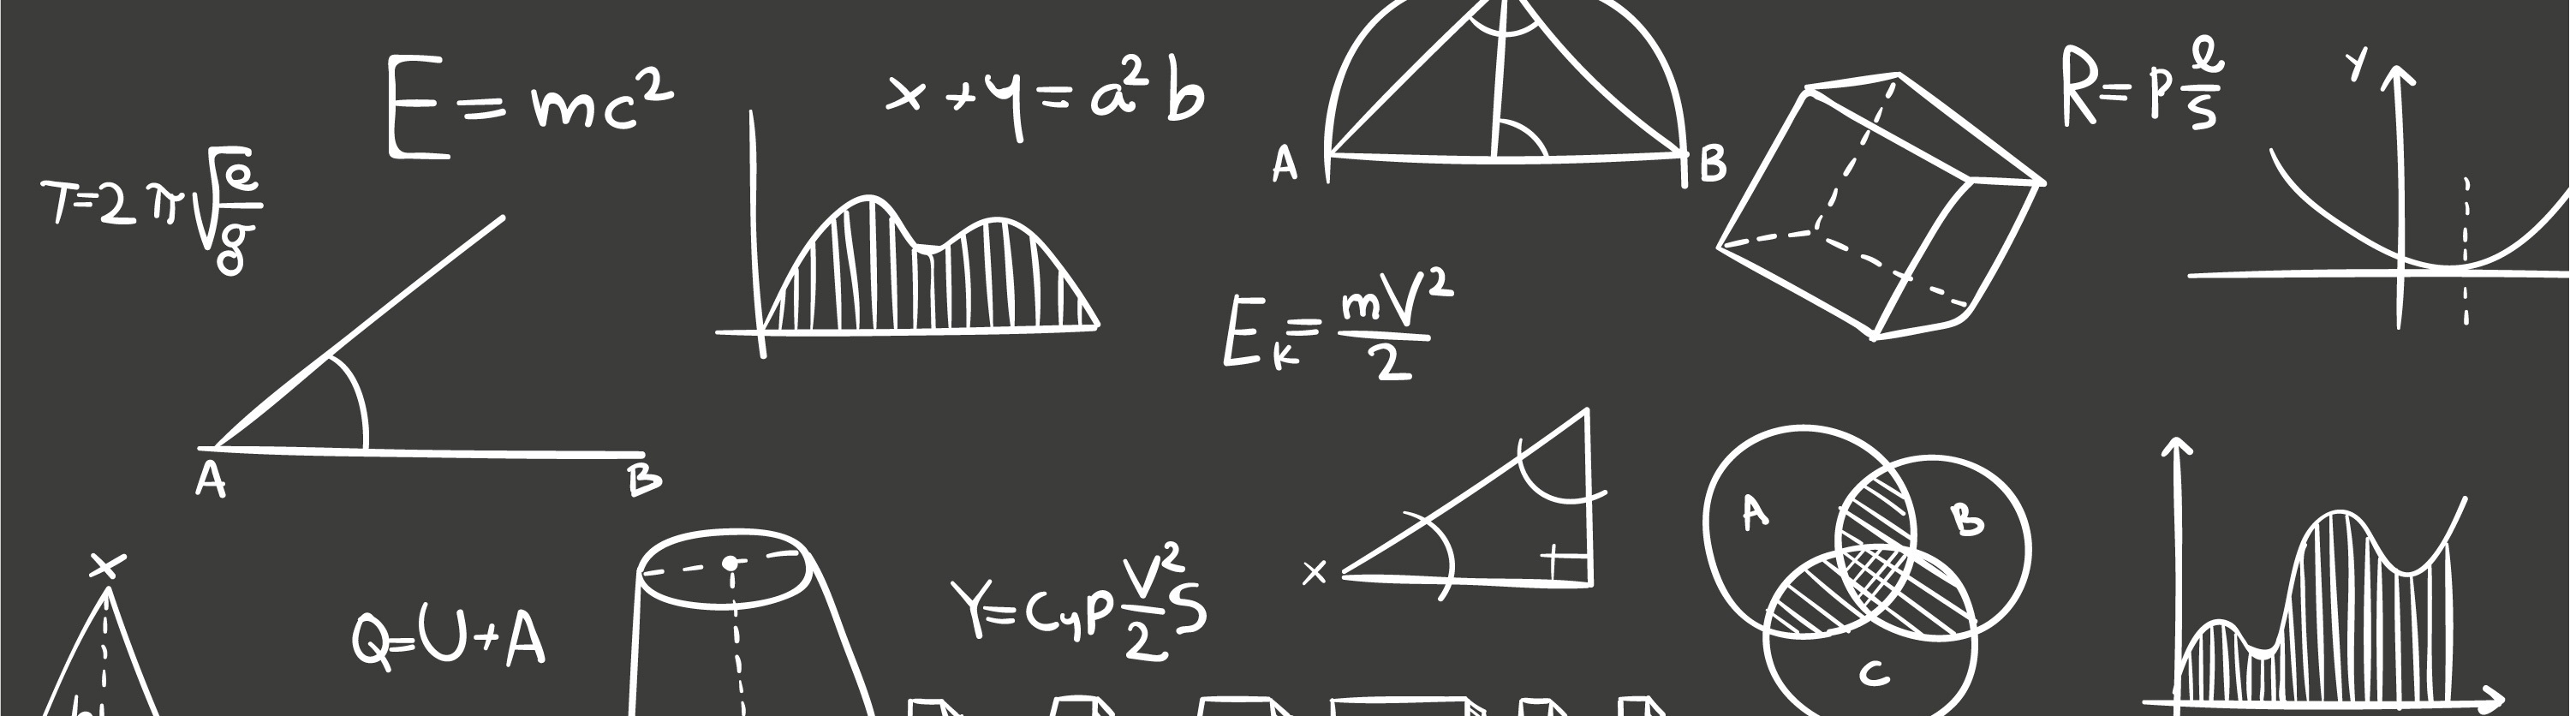 E = mc²
x + y = a²b
A
B
R = p e/s
Y
T = 2 π √e/g
A
B
E_k = mV²/2
x
A
B
C
x
Q = U + A
Y = C_y p V²/2 S
h